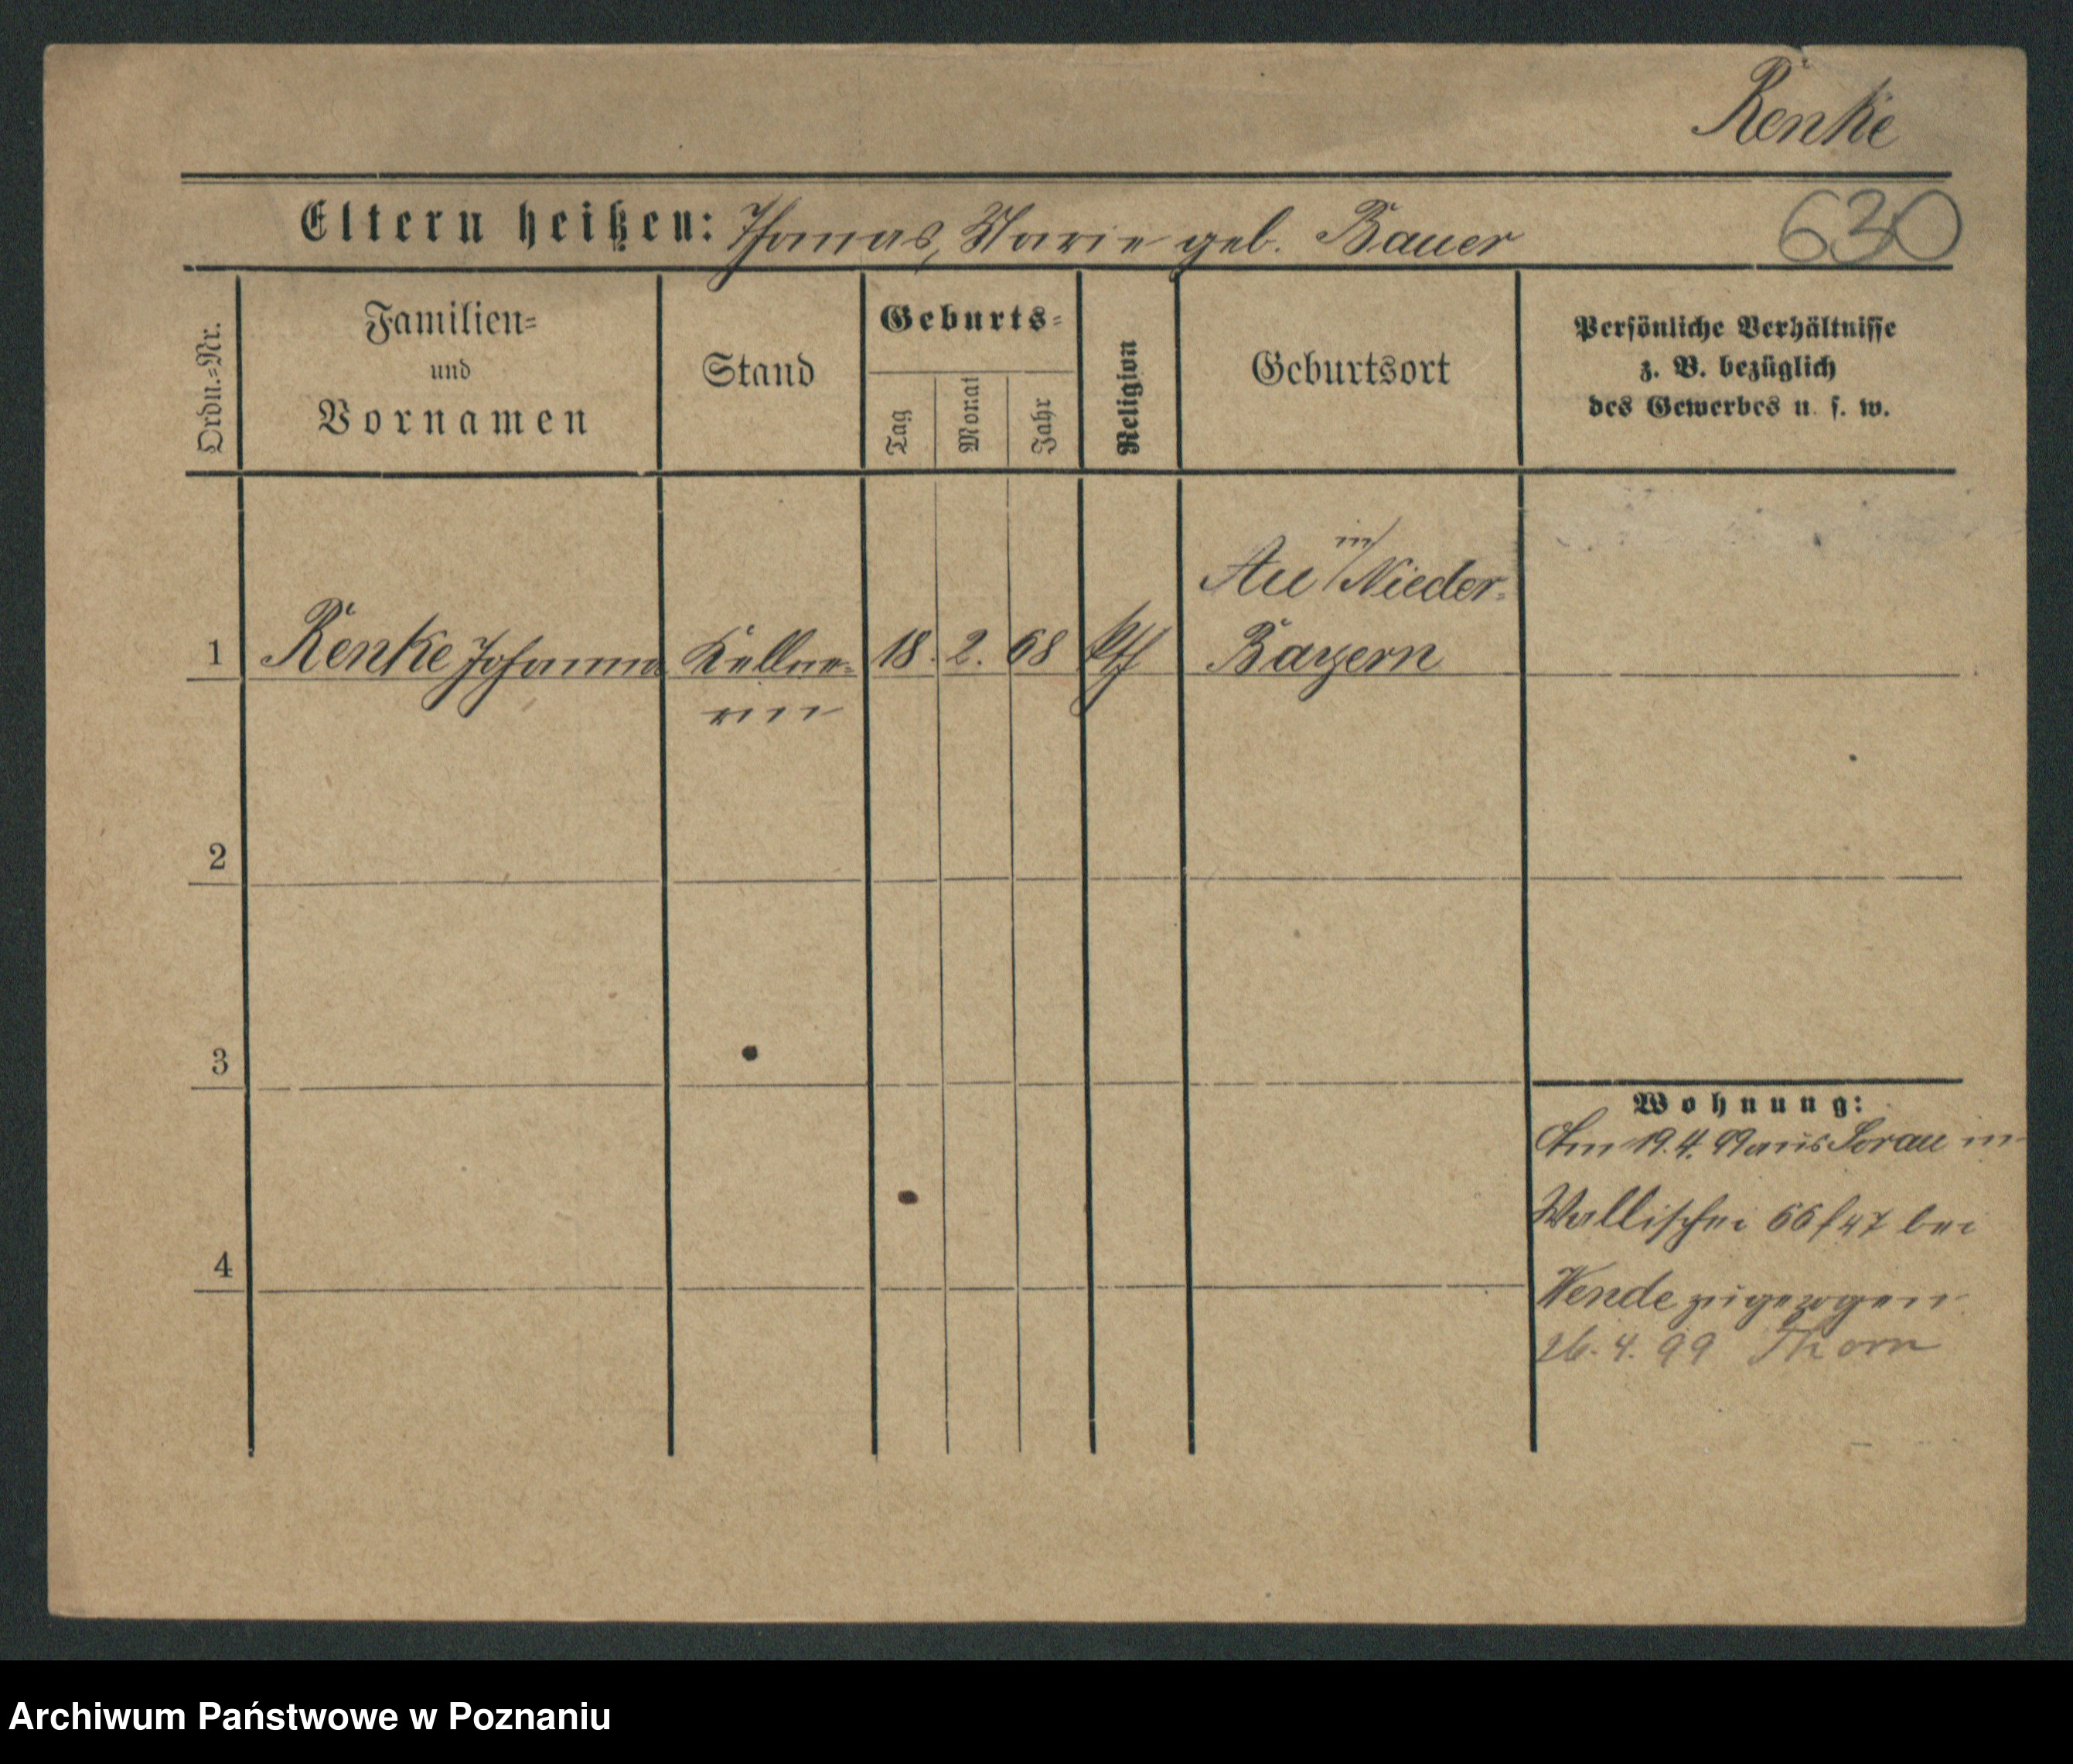 Renke
Eltern heißen: Thomas, Marie geb. Bauer
630
Ordn.=Nr.
Familien=
und
Vornamen
Stand
Geburts=
Tag
Monat
Jahr
Religion
Geburtsort
Persönliche Verhältnisse
z. B. bezüglich
des Gewerbes u. s. w.
1
Renke Johanna
Kellne-
rin
18. 2. 68
Au in/Nieder-
Bayern
2
3
4
Wohnung:
Am 19.4.99 aus Sorau in
Wallischei 66/47 bei
Wende zugezogen
26.4.99 Thorn
Archiwum Państwowe w Poznaniu